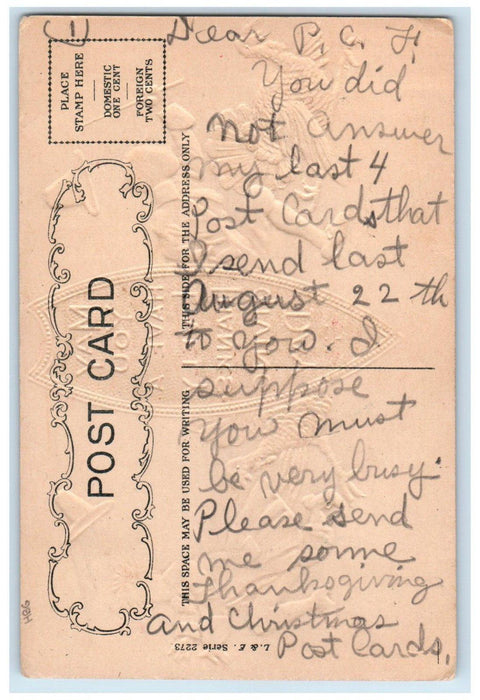 (1)
Dear P. C. F.
You did
not answer
my last 4
Post Cards that
I send last
August 22 th
to you. I
suppose
you must
be very busy.
Please send
me some
Thanksgiving
and Christmas
Post Cards.
PLACE
STAMP HERE
DOMESTIC
ONE CENT
FOREIGN
TWO CENTS
POST CARD
THIS SPACE MAY BE USED FOR WRITING
THIS SIDE FOR THE ADDRESS ONLY
L. & E. Serie 2273